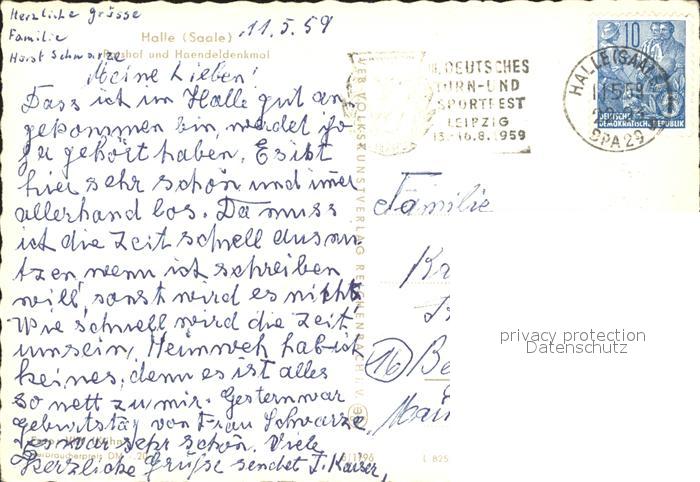 Herzliche grüsse
Familie
Horst Schwarze
Halle (Saale)
11.5.59
und Haendeldenkmal
Meine Lieben!
Dass ich im Halle gut an
gekommen bin, werdet ja
gehört haben. Es ist
hier sehr schön und imer
allerhand los. Da muss
ich die Zeit schnell ausnu
tzen wenn ich schreiben
will, sonst wird es nichts
Wie schnell wird die Zeit
um sein, Heimweh hab ich
keines, denn es ist alles
so nett zu mir. Gestern war
geburtstag von Frau Schwarze
es war sehr schön. Viele
Herzliche Grüße sendet J. Kaiser,
VEB VOLKSKUNSTVERLAG REICHENBACH I. V.
L 825
DEUTSCHES
TURN-UND
SPORTFEST
LEIPZIG
13.-16.8.1959
HALLE (SAALE)
11.5.59
BPA 29
10
DEUTSCHE
DEMOKRATISCHE REPUBLIK
Familie
Kr
(16) Be
Mai
privacy protection
Datenschutz